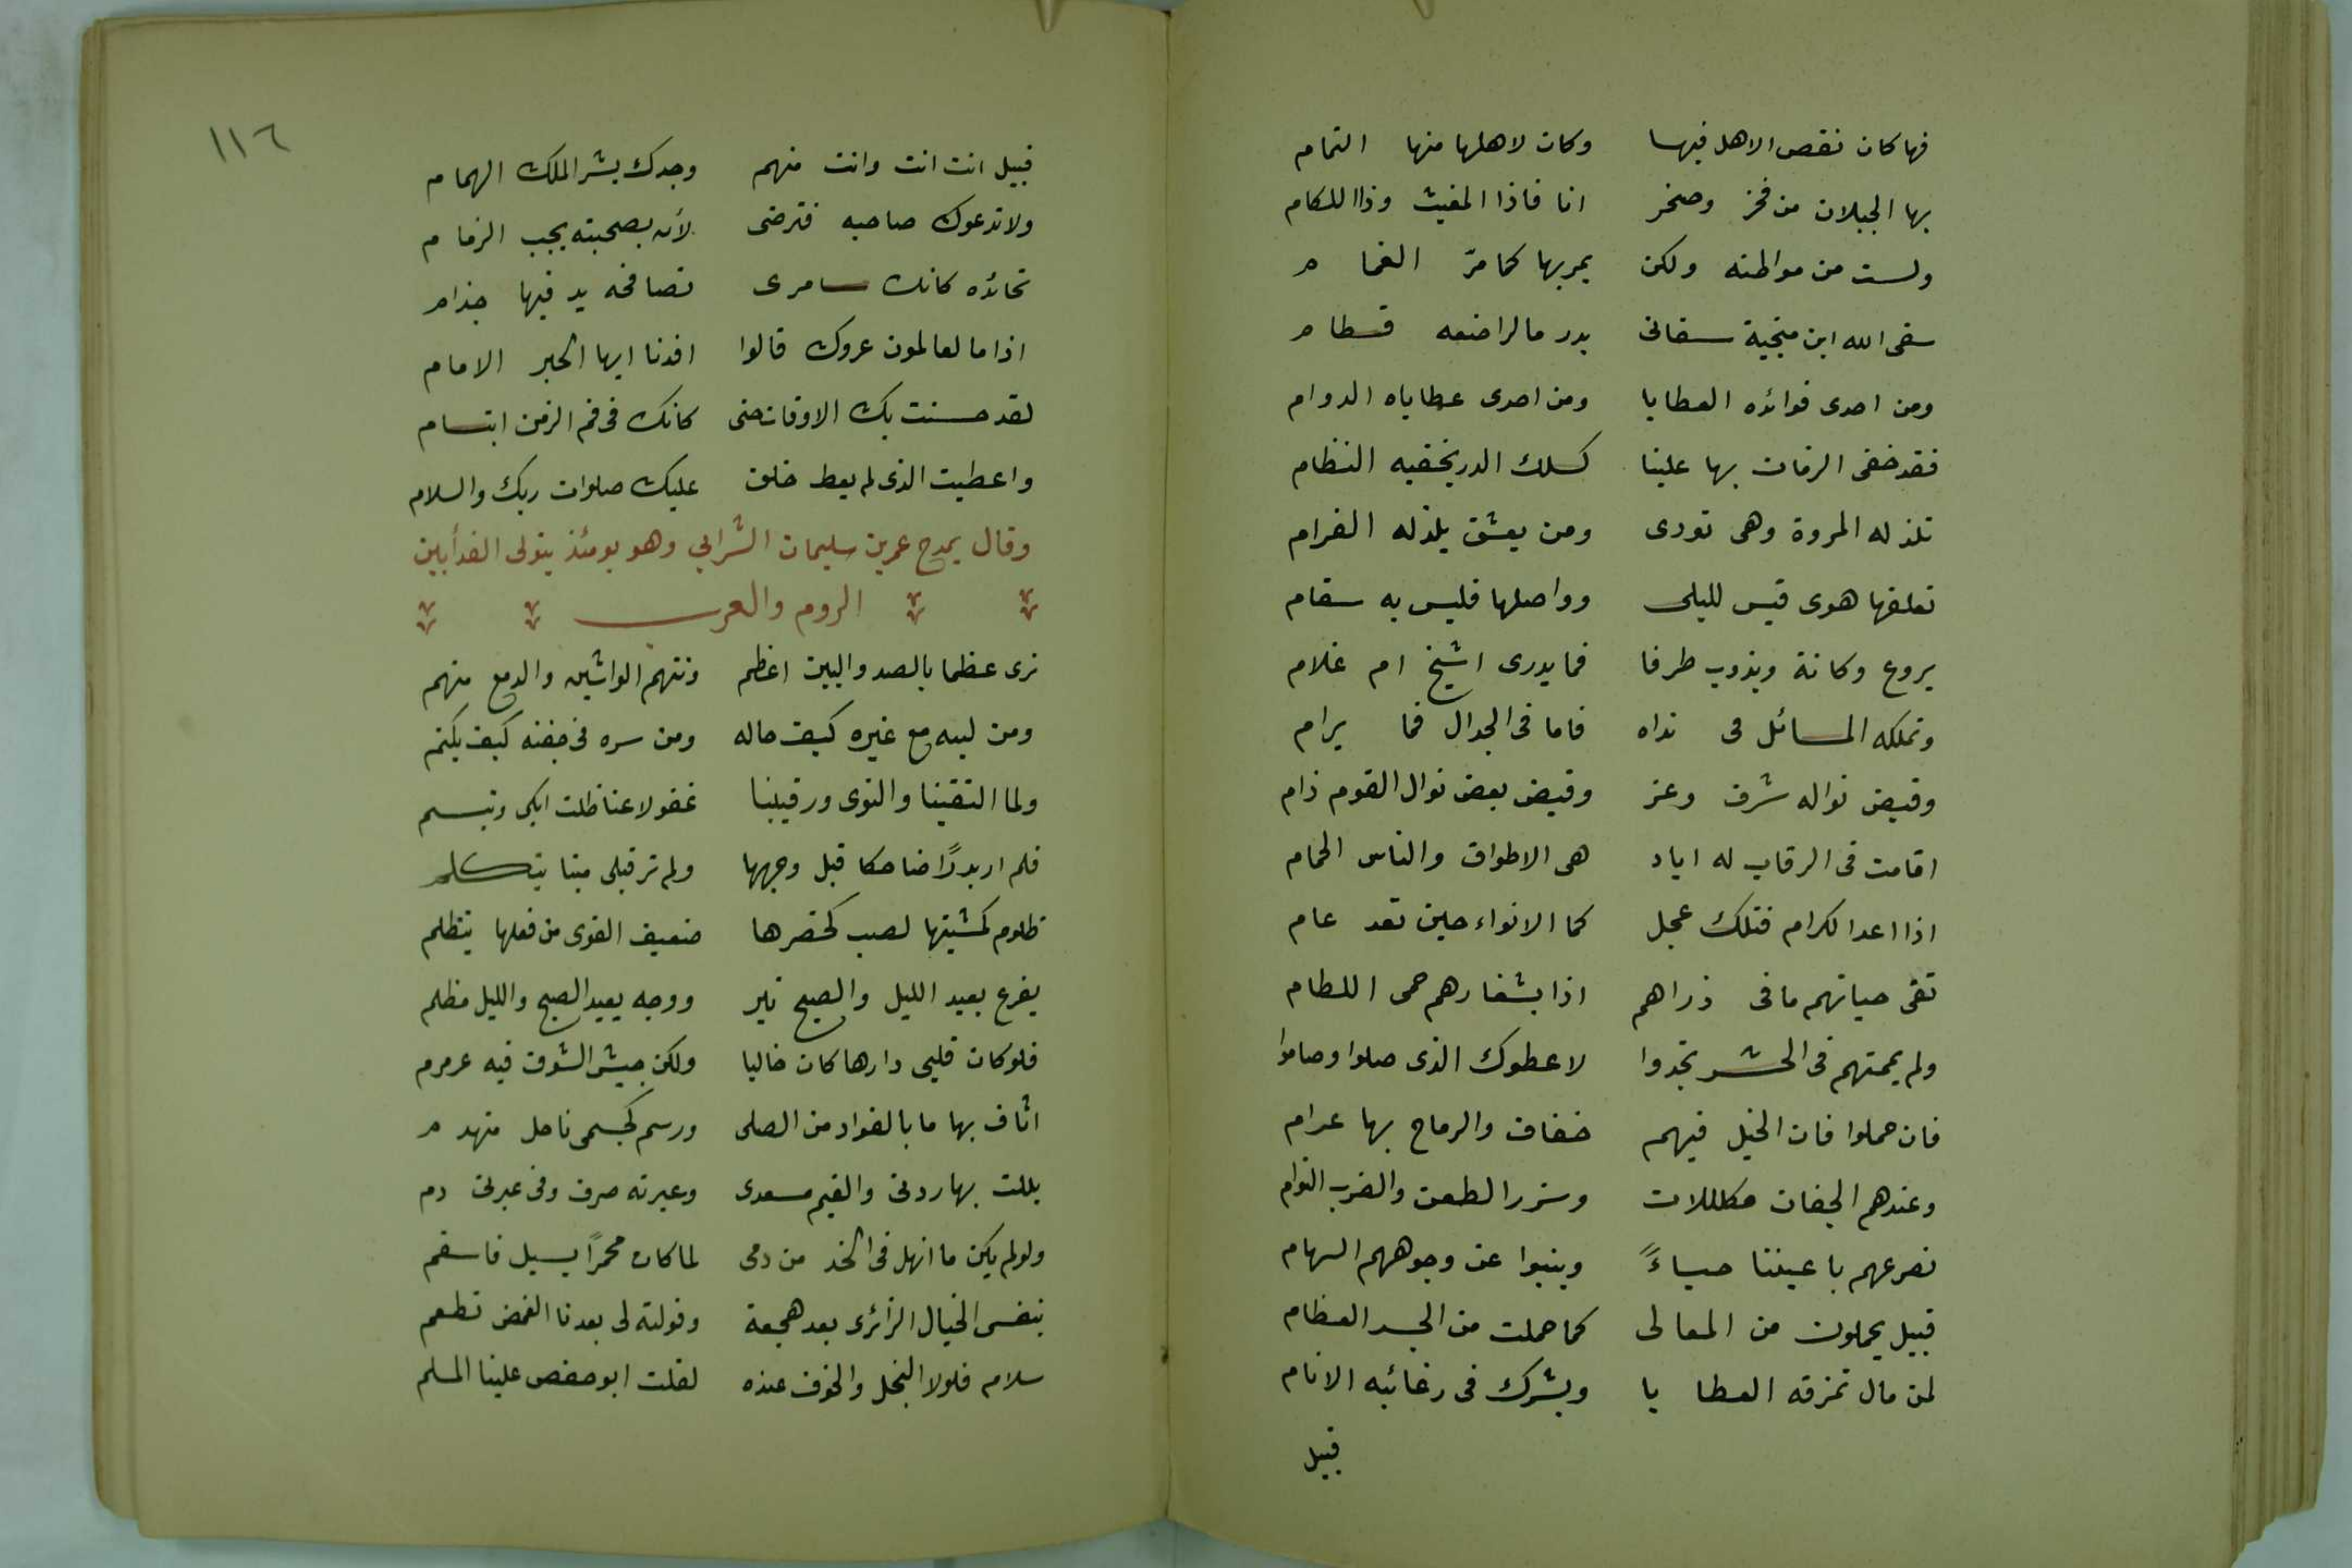 فها كان نقص الاهل فيها وكان لاهلها منها التمام
بها الجبلان من فخر وصخر انا فاذا المغيث وذا اللكام
ولست من مواطنه ولكن يمر بها كما مرّ الغمام
سقى الله ابن منجية سقانى بدر ما لراضعه فطام
ومن احدى فوائده العطايا ومن احدى عطاياه الدوام
فقد خفى الزمان بها علينا كسلك الدر يخفيه النظام
تلذ له المروة وهى تودى ومن يعشق يلذ له الغرام
تعلقها هوى قيس لليلى وواصلها فليس به سقام
يروع وكانة ويذوب ظرفا فما يدرى اشيخ ام غلام
وتملكه المسائل فى نداه فاما فى الجدال فما يرام
وقبض نواله شرف وعز وقبض بعض نوال القوم ذام
اقامت فى الرقاب له اياد هى الاطواق والناس الحمام
اذا اعدا لكرام فتلك عجل كما الانواء حين تعد عام
تقى جباتهم ما فى ذراهم اذا بشفارهم حمى اللطام
ولم يممتهم فى الحشر تجدوا لاعطوك الذى صلوا وصاموا
فان حملوا فان الخيل فيهم خفاف والرماح بها عرام
وعندهم الجفان مكللات وشزر الطعن والضرب التوام
نصرعهم باعيننا حياءً وينبوا عن وجوههم السهام
قبيل يحملون من المعالى كما حملت من الجسد العظام
لمن مال تمزقه العطايا ويشرك فى رغائبه الانام
قبيل
١١٦
قبيل انت انت وانت منهم وجدك بشر الملك الهمام
ولا تدعوك صاحبه فترضى لأن بصحبته يجب الزمام
تحائده كانك سامرى تصافحه يد فيها جذام
اذا ما لعالمون عروك قالوا افدنا ايها الحبر الامام
لقد حسنت بك الاوقات حتى كانك فى فم الزمن ابتسام
واعطيت الذى لم يعط خلق عليك صلوات ربك والسلام
وقال يمدح عمر بن سليمان الشرابي وهو يومئذ يتولى الفدأبين
الروم والعرب
نرى عظما بالصد والبين اعظم ونتهم الواشين والدمع منهم
ومن لبه مع غيره كيف حاله ومن سره فى جفنه كيف يكتم
ولما التقينا والنوى ورقيبنا غفولا عنا ظلت ابكى وتبسم
فلم ار بدرًا ضاحكا قبل وجهها ولم تر قبلى ميتا يتكلم
ظلوم كمشيتها لصب كخصرها ضعيف القوى من فعلها يتظلم
بفرع يعيد الليل والصبح نير ووجه يعيد الصبح والليل مظلم
فلو كان قلبى دارها كان خاليا ولكن جيش الشوق فيه عرمرم
اثاف بها ما بالفواد من الصلى ورسم كجسمى ناحل متهدم
بللت بها ردنى والغيم مسعدى وعبرته صرف وفى عبرتى دم
ولو لم يكن ما انهل فى الخد من دمى لما كان محمرًا يسيل فاسقم
بنفسى الخيال الزائرى بعد هجعة وقولته لى بعدنا الغمض تطعم
سلام فلولا البخل والخوف عنده لقلت ابو حفص علينا المسلم